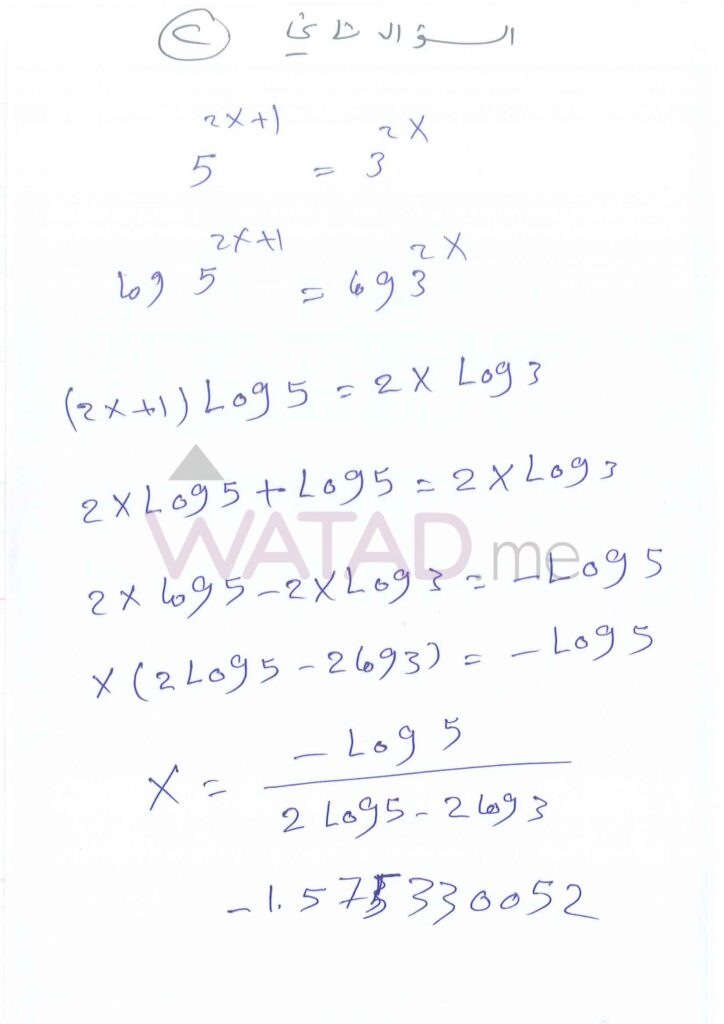 السؤال الثاني C
5^{2x+1} = 3^{2x}
log 5^{2x+1} = log 3^{2x}
(2x+1) Log 5 = 2x Log 3
2x Log 5 + Log 5 = 2x Log 3
WATAD me
2x log 5 - 2x Log 3 = - Log 5
x (2 Log 5 - 2 log 3) = - Log 5
x = \frac{- Log 5}{2 Log 5 - 2 log 3}
-1.575330052